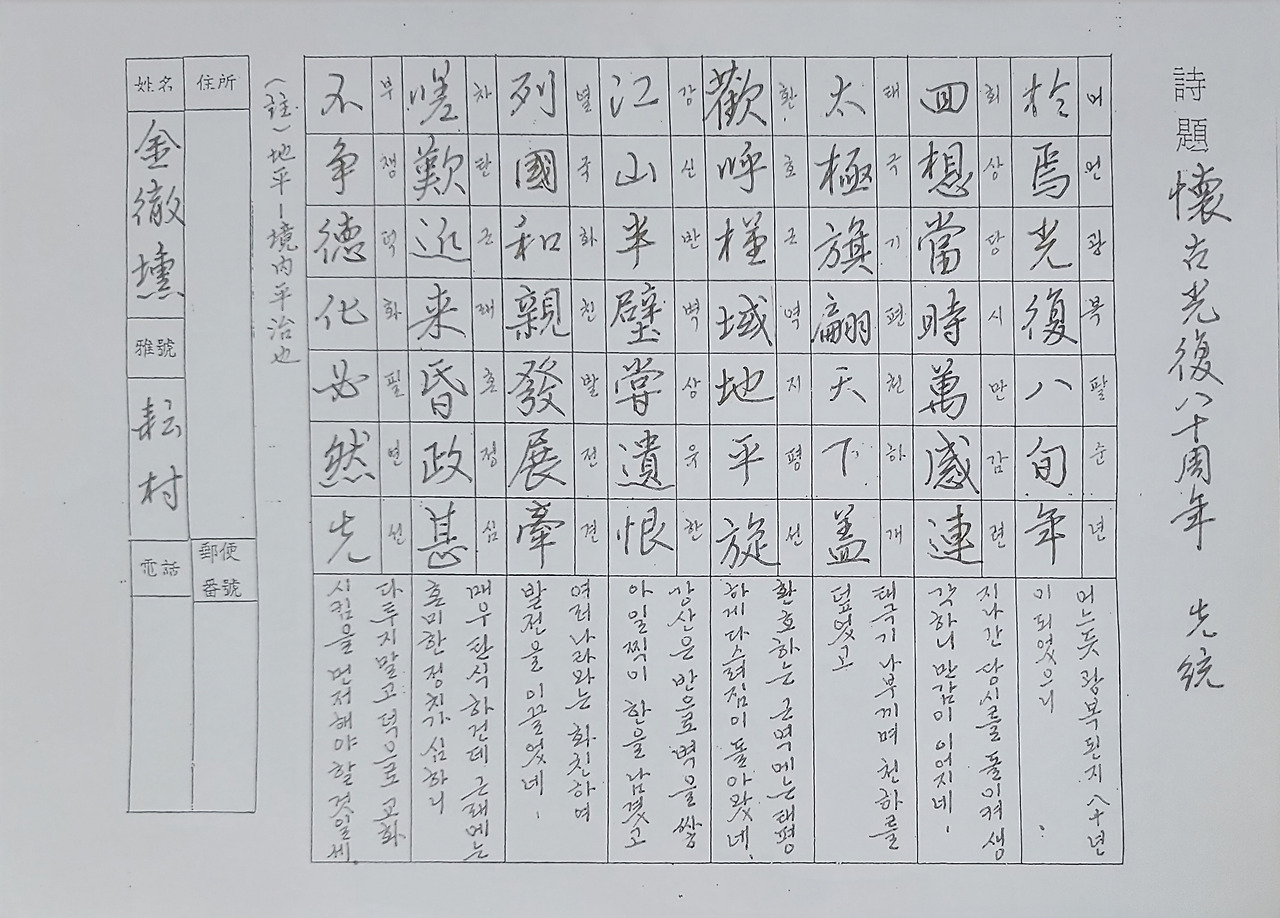 詩題 懷古光復八十周年 先統
어언광복팔순년
於焉光復八旬年
회상당시만감련
回想當時萬感連
태극기편천하개
太極旗翩天下盖
환호근역지평선
歡呼槿域地平旋
강산반벽상유한
江山半壁嘗遺恨
렬국화친발전견
列國和親發展牽
차탄근래혼정심
嗟歎近来昏政甚
부쟁덕화필연선
不争德化必然先
어느듯 광복된지 八十년
이 되었으니
지나간 당시를 돌이켜 생
각하니 만감이 이어지네.
태극기 나부끼며 천하를
덮었고
환호하는 근역에는 태평
하게 다스려짐이 돌아왔네.
강산은 반으로 벽을 쌓
아 일찍이 한을 남겼고
여러나라와는 화친하여
발전을 이끌었네.
매우 탄식하건데 근래에는
혼미한 정치가 심하니
다투지말고 덕으로 교화
시킴을 먼저해야 할 것일세.
(註)地平-境內平治也
住所
郵便番號
姓名 金徹壎
雅號 耘村
電話